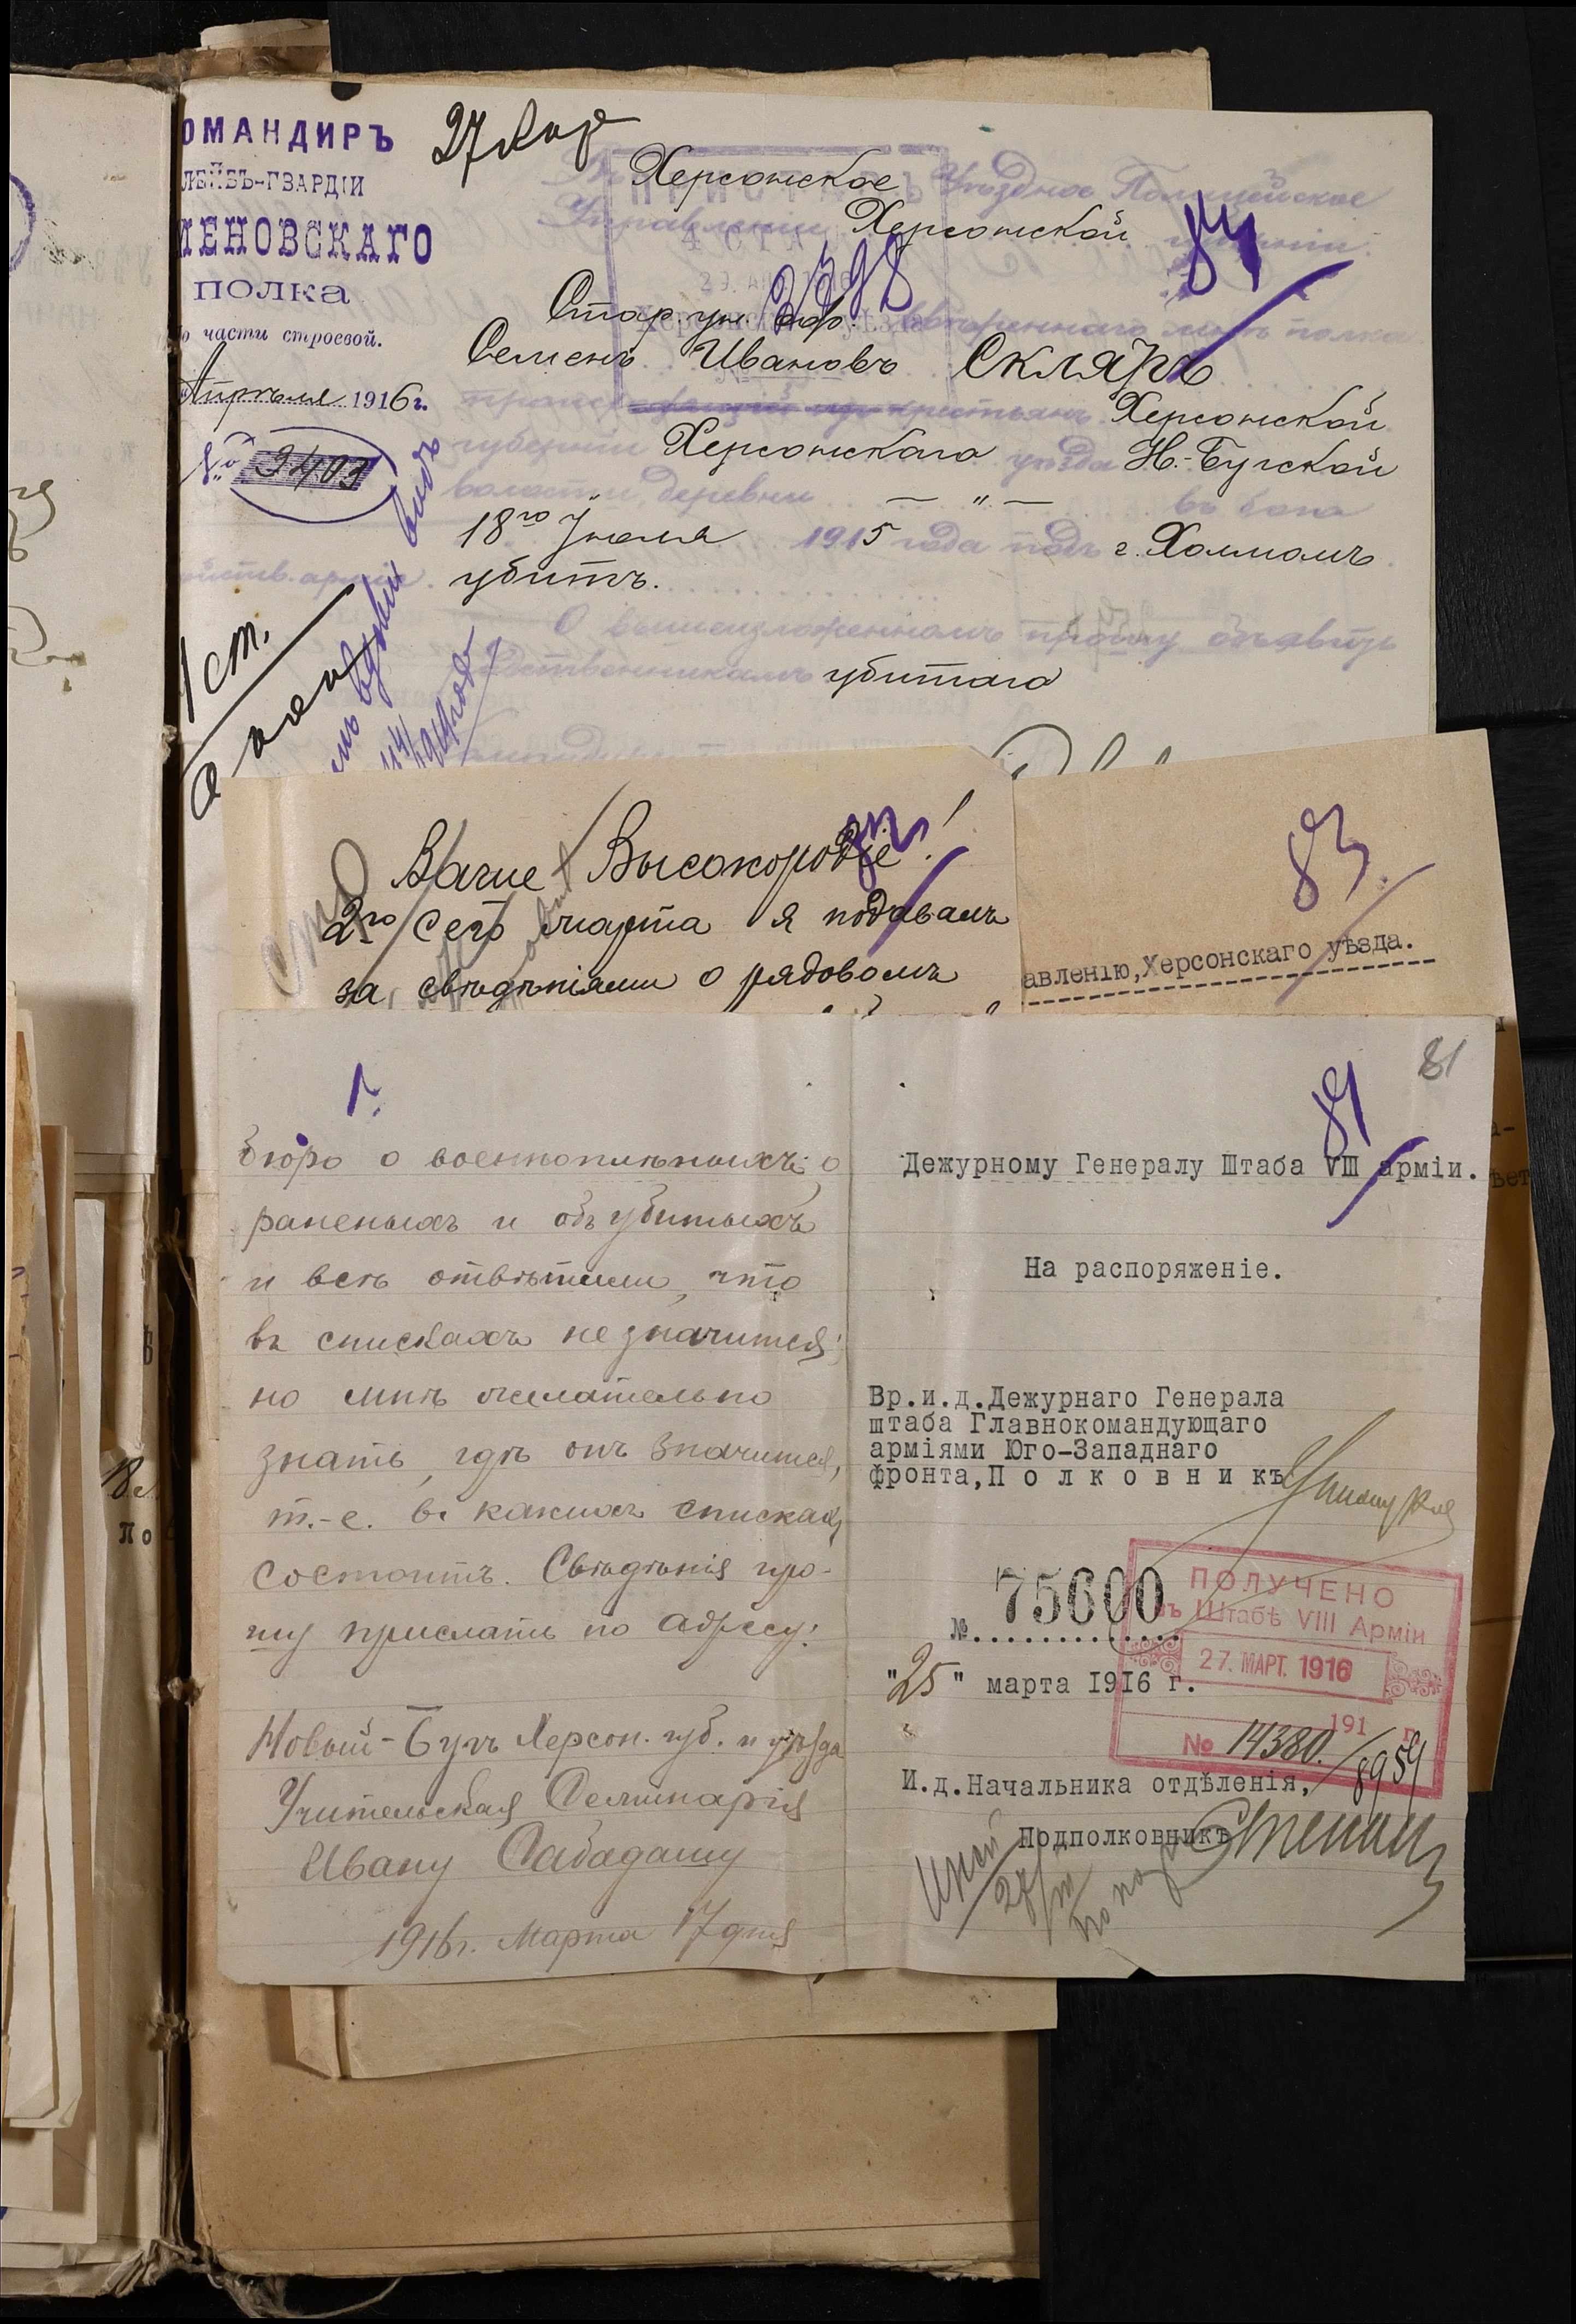 ОМАНДИРЪ
ЛЕЙБЪ-ГВАРДІИ
МЕНОВСКАГО
ПОЛКА
о части строевой.
Апрѣля 1916 г.
№ 9403
27 Апр
84
Херсонское Уѣздное Полицейское
Управленіе Херсонской губерніи.
2398
Стар. ун. оф. ввѣреннаго мнѣ полка
Семенъ Ивановъ СКЛЯРЪ
крестьянъ Херсонской
губерніи Херсонскаго уѣзда Н.-Бугской
волости, деревни — " — въ бою
18го Іюля 1915 года подъ г. Холмомъ
убитъ.
О вышеизложенномъ прошу объявить
родственникамъ убитаго
1 ст.
Ваше Высокородіе!
2го сего марта я подавалъ
за свѣдѣніями о рядовомъ
83.
авленію, Херсонскаго уѣзда.
1.
бюро о военноплѣнныхъ, о
раненыхъ и объ убитыхъ
и всѣ отвѣтили, что
въ спискахъ не значится;
но мнѣ желательно
знать, гдѣ онъ значится,
т.-е. въ какихъ спискахъ
состоитъ. Свѣдѣнія про-
шу прислать по адресу:
Новый-Бугъ Херсон. губ. и уѣзда
Учительская Семинарія
Ивану Сабадашу
1916 г. Марта 17 дня
81
81
Дежурному Генералу Штаба VIII арміи.
На распоряженіе.
Вр.и.д.Дежурнаго Генерала
штаба Главнокомандующаго
арміями Юго-Западнаго
фронта, П о л к о в н и къ
№ 75600
"25" марта 1916 г.
ПОЛУЧЕНО
въ Штабѣ VIII Арміи
27. МАРТ. 1916
191 г.
№ 14380./8959
И.д.Начальника отдѣленія,
Подполковникъ